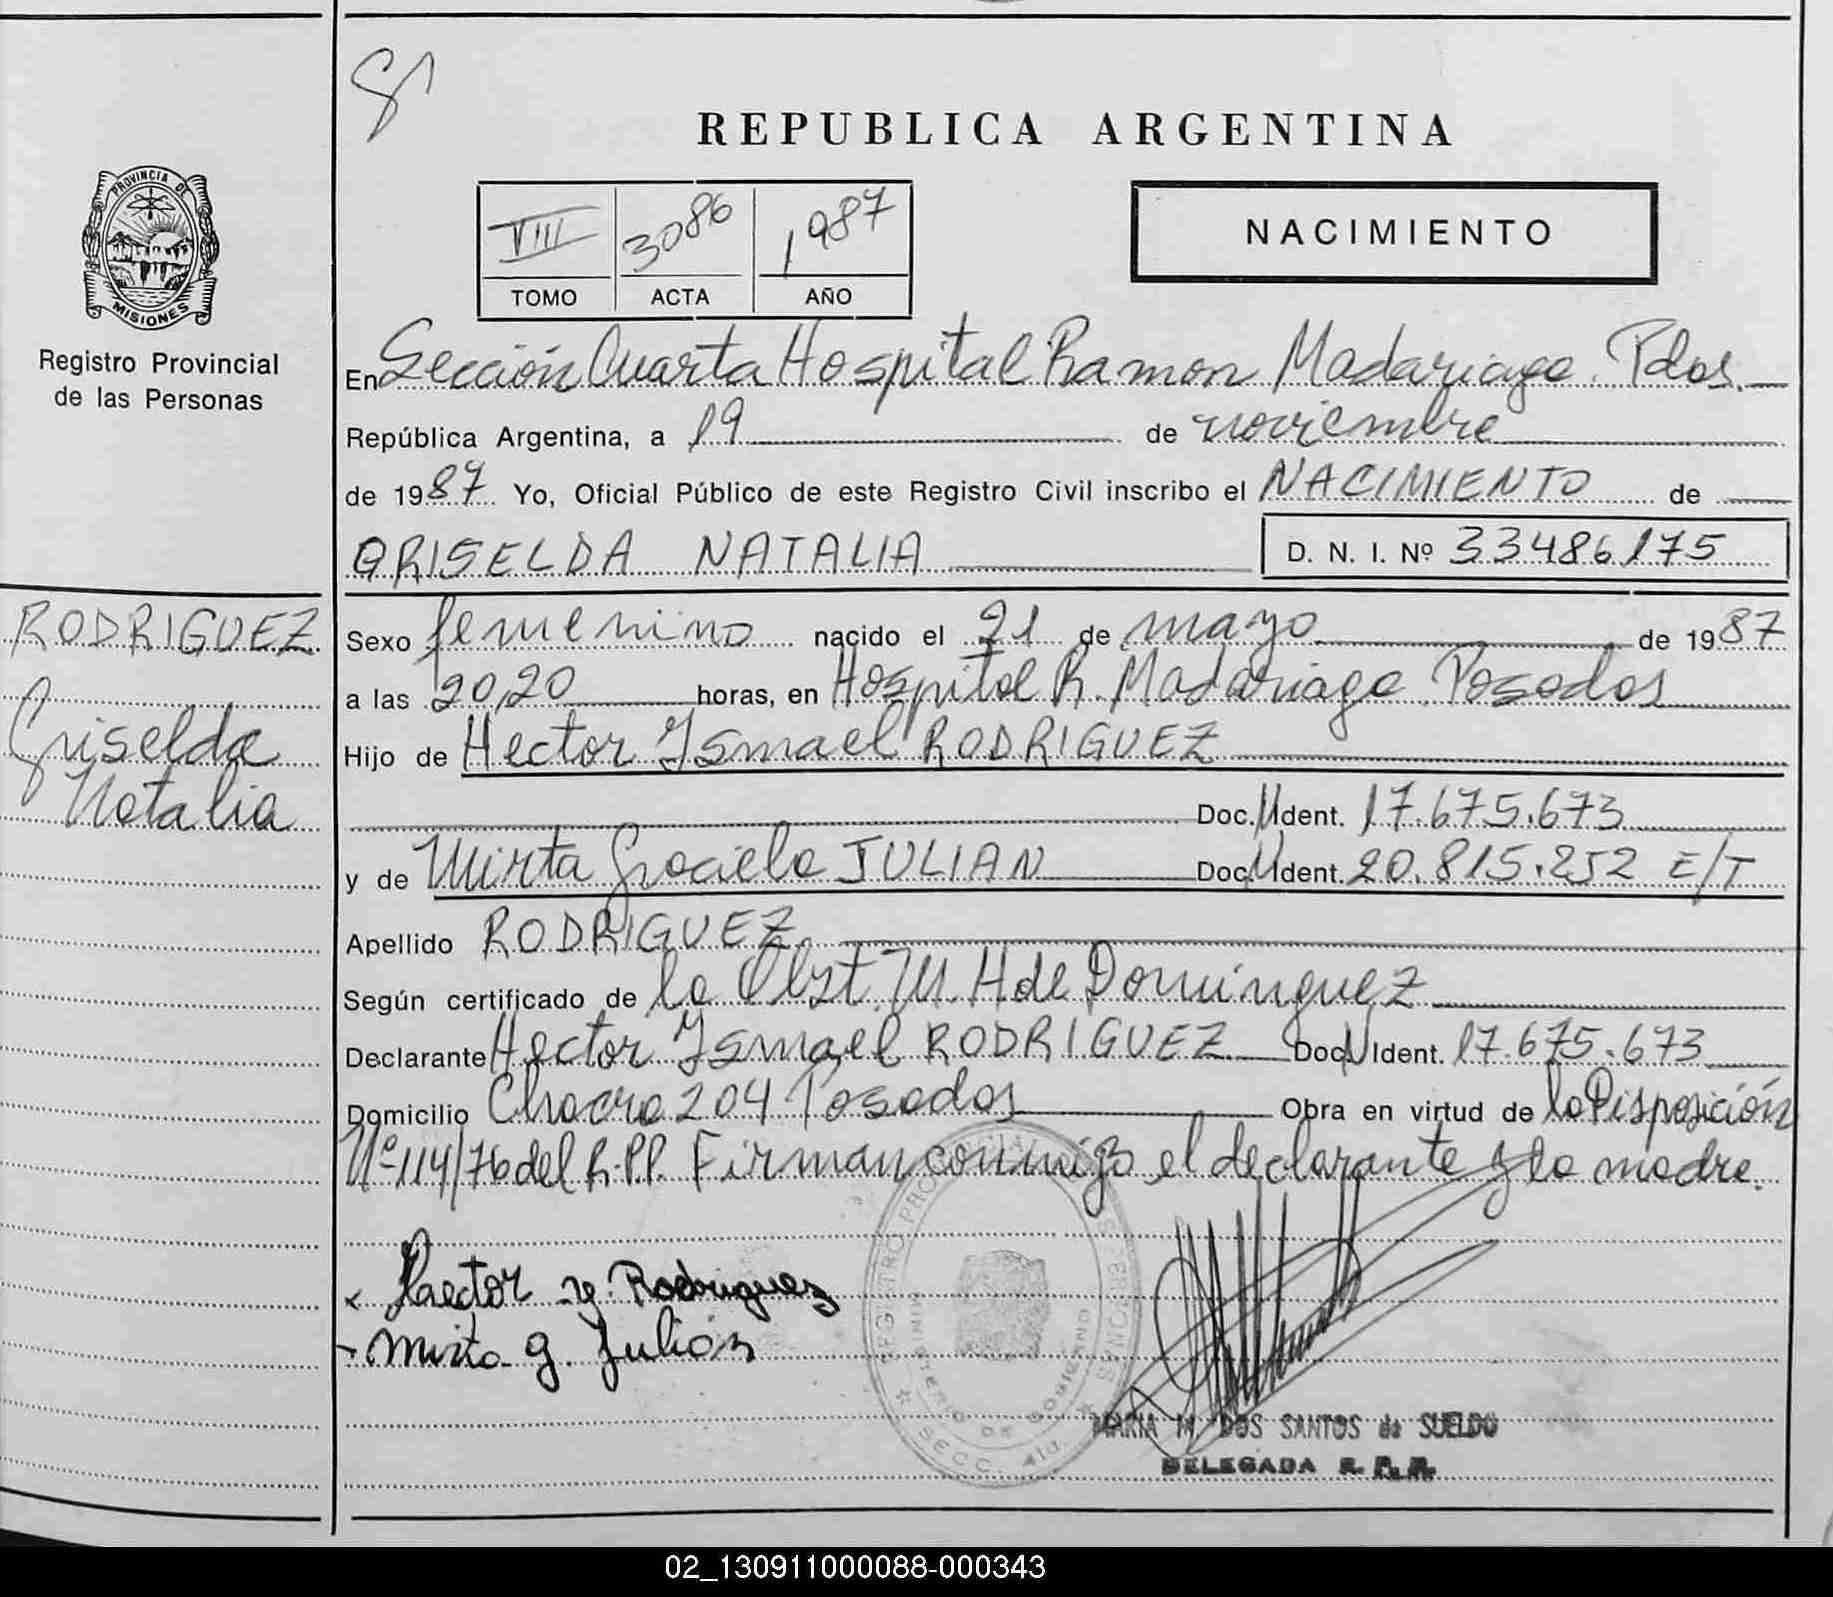 REPUBLICA ARGENTINA
PROVINCIA DE
MISIONES
Registro Provincial
de las Personas
VIII 3086 1987
TOMO ACTA AÑO
NACIMIENTO
En Sección Cuarta Hospital Ramon Madariaga. Pdas.
República Argentina, a 19 de noviembre
de 1987 Yo, Oficial Público de este Registro Civil inscribo el NACIMIENTO de
GRISELDA NATALIA D. N. I. Nº 33486175
RODRIGUEZ
Griselda
Natalia
Sexo femenino nacido el 21 de mayo de 1987
a las 20,20 horas, en Hospital R. Madariaga Posadas
Hijo de Hector Ismael RODRIGUEZ
Doc. N Ident. 17.675.673
y de Mirta Graciela JULIAN Doc. N Ident. 20.815.252 E/T
Apellido RODRIGUEZ
Según certificado de la Obst. M. H de Dominguez
Declarante Hector Ismael RODRIGUEZ Doc N Ident. 17.675.673
Domicilio Chacra 204 Posadas Obra en virtud de la Disposición
Nº 114/76 del R.P.P. Firman conmigo el declarante y la madre.
x Haector y. Rodriguez
- Mirta g. Julián
REGISTRO PROVINCIAL DE LAS PERSONAS
MINISTERIO DE GOBIERNO
SECC. 4ta.
MARIA M. DOS SANTOS de SUELDO
DELEGADA R. P. P.
02_130911000088-000343